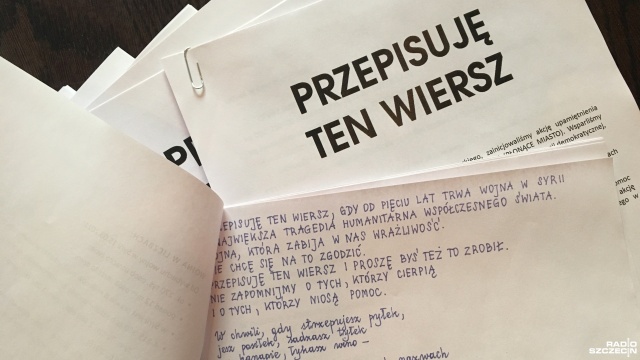 PRZEPISUJĘ
TEN WIERSZ
zainicjowaliśmy akcję upamiętnienia
MIASTO). Wsparliśmy
demokratycznej,
TEN WIERSZ, GDY OD PIĘCIU LAT TRWA WOJNA W SYRII
NAJWIĘKSZA TRAGEDIA HUMANITARNA WSPÓŁCZESNEGO ŚWIATA.
KTÓRA ZABIJA W NAS WRAŻLIWOŚĆ.
NIE CHCĘ SIĘ NA TO ZGODZIĆ.
PRZEPISUJĘ TEN WIERSZ I PROSZĘ BYŚ TEŻ TO ZROBIŁ.
NIE ZAPOMNIJMY O TYCH, KTÓRZY CIERPIĄ
I O TYCH, KTÓRZY NIOSĄ POMOC.
W chwili, gdy strzepujesz pyłek,
jesz posiłek, zadzasz tyłek
kanapie, łykasz wino –
RADIO
SZCZECIN